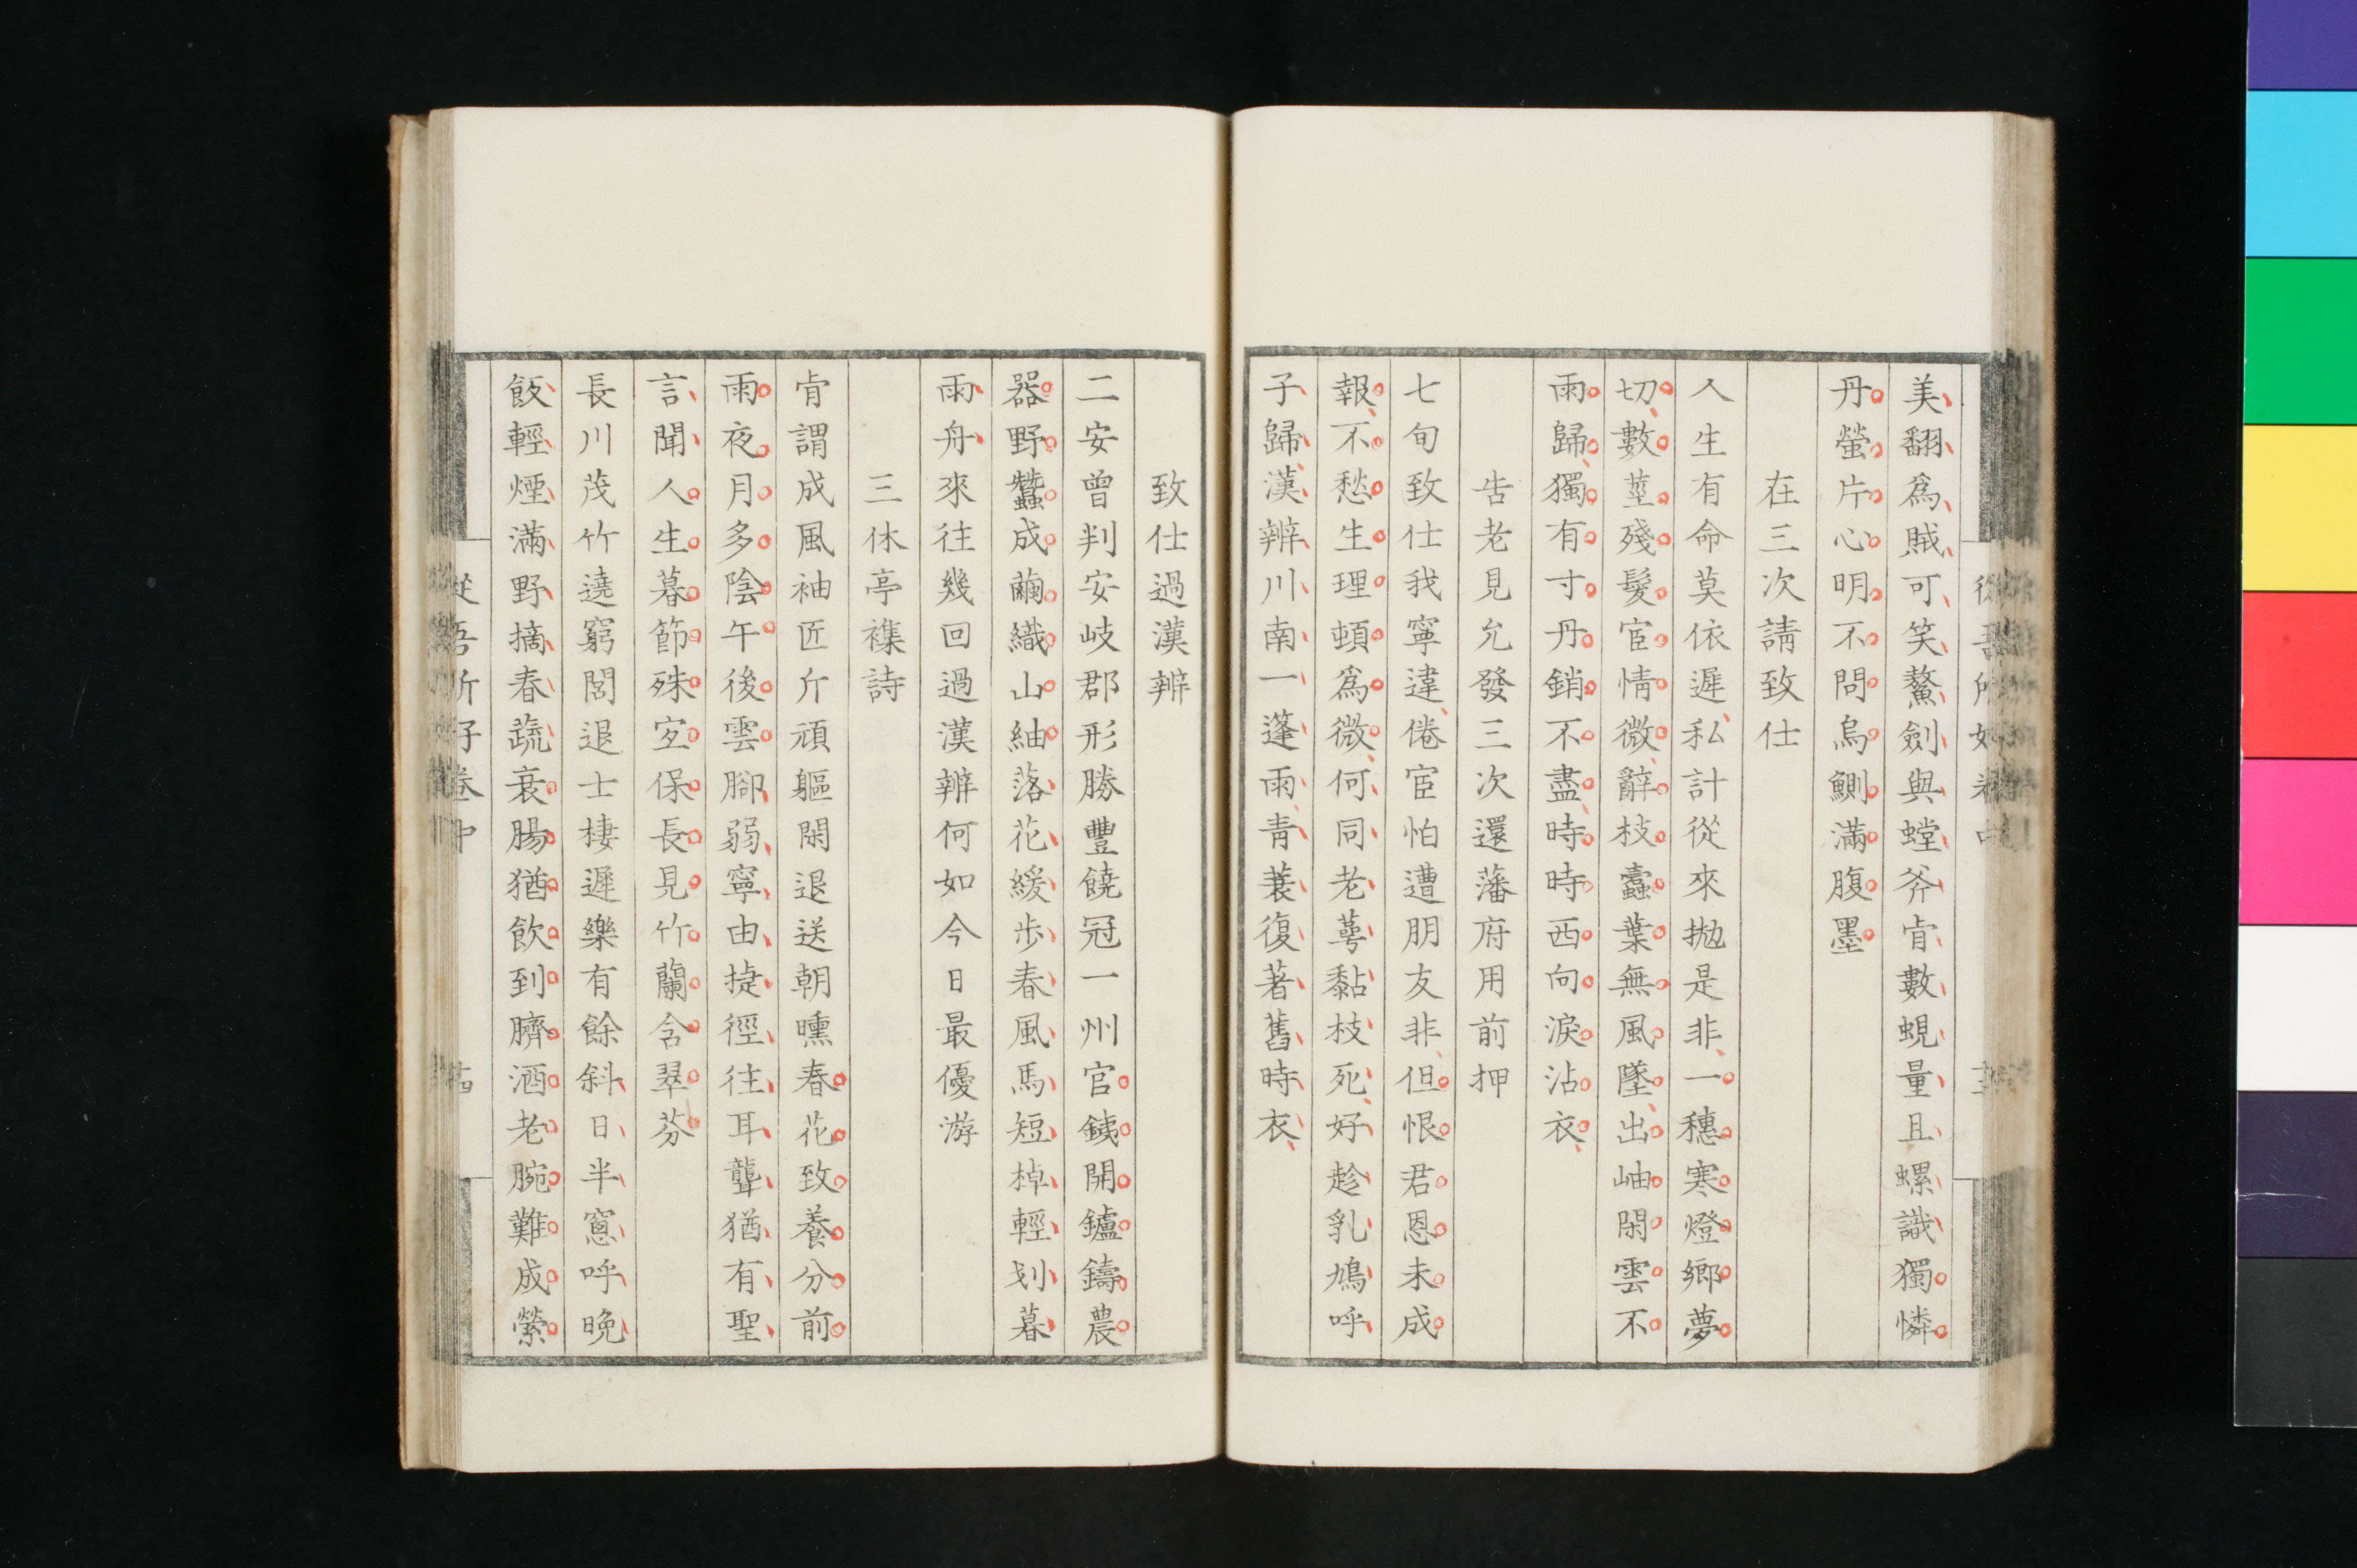 美翻爲賊可笑鰲劍與螳斧肯數蜆量且螺識獨憐
丹螢片心明不問烏鰂滿腹墨
在三次請致仕
人生有命莫依遲私計從來拋是非一穗寒燈鄉夢
切數莖殘髮宦情微辭枝蠹葉無風墜出岫閑雲不
雨歸獨有寸丹銷不盡時時西向淚沾衣
告老見允發三次還藩府用前押
七旬致仕我寧違倦宦怕遭朋友非但恨君恩未成
報不愁生理頓爲微何同老蕚黏枝死好趁乳鳩呼
子歸漢辨川南一蓬雨靑蓑復著舊時衣
致仕過漢辨
二安曾判安岐郡形勝豐饒冠一州官銕開鑪鑄農
器野蠶成繭織山紬落花緩步春風馬短棹輕划暮
雨舟來往幾回過漢辨何如今日最優游
三休亭襍詩
肯謂成風袖匠斤頑軀閑退送朝曛春花致養分前
雨夜月多陰午後雲腳弱寧由捷徑往耳聾猶有聖
言聞人生暮節殊宐保長見竹蘭含翠芬
長川茂竹遶窮閭退士棲遲樂有餘斜日半窻呼晚
飯輕煙滿野摘春蔬衰腸猶飲到臍酒老腕難成縈
從吾所好卷中